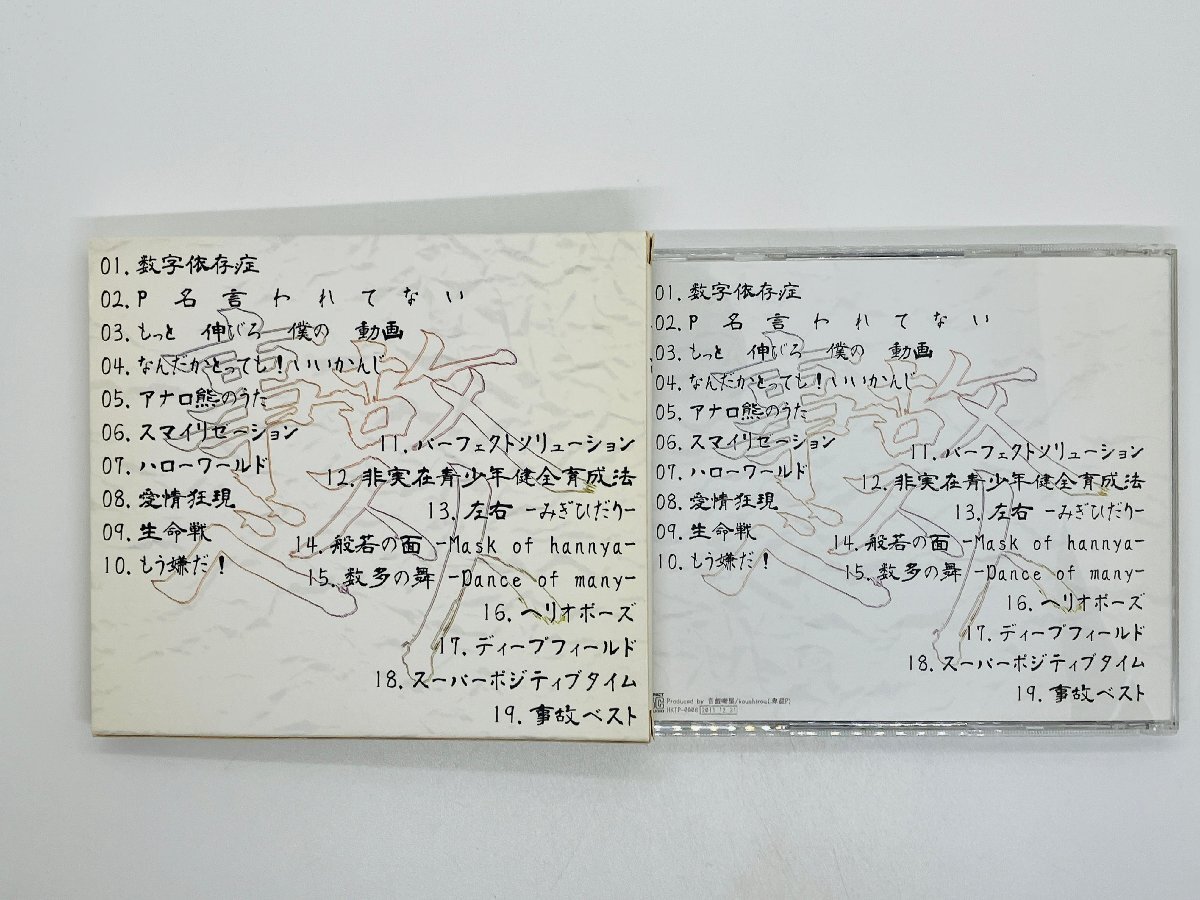 01. 数字依存症
02. P 名 言 わ れ て な い
03. もっと 伸びろ 僕の 動画
04. なんだかとっても!いいかんじ
05. アナロ熊のうた
06. スマイリゼーション
07. ハローワールド
08. 愛情狂現
09. 生命戦
10. もう嫌だ!
11. パーフェクトソリューション
12. 非実在青少年健全育成法
13. 左右 -みぎひだり-
14. 般若の面 -Mask of hannya-
15. 数多の舞 -Dance of many-
16. ヘリオポーズ
17. ディープフィールド
18. スーパーポジティブタイム
19. 事故ベスト
01. 数字依存症
02. P 名 言 わ れ て な い
03. もっと 伸びろ 僕の 動画
04. なんだかとっても!いいかんじ
05. アナロ熊のうた
06. スマイリゼーション
07. ハローワールド
08. 愛情狂現
09. 生命戦
10. もう嫌だ!
11. パーフェクトソリューション
12. 非実在青少年健全育成法
13. 左右 -みぎひだり-
14. 般若の面 -Mask of hannya-
15. 数多の舞 -Dance of many-
16. ヘリオポーズ
17. ディープフィールド
18. スーパーポジティブタイム
19. 事故ベスト
Produced by
HKTP-0008 2011.12.31